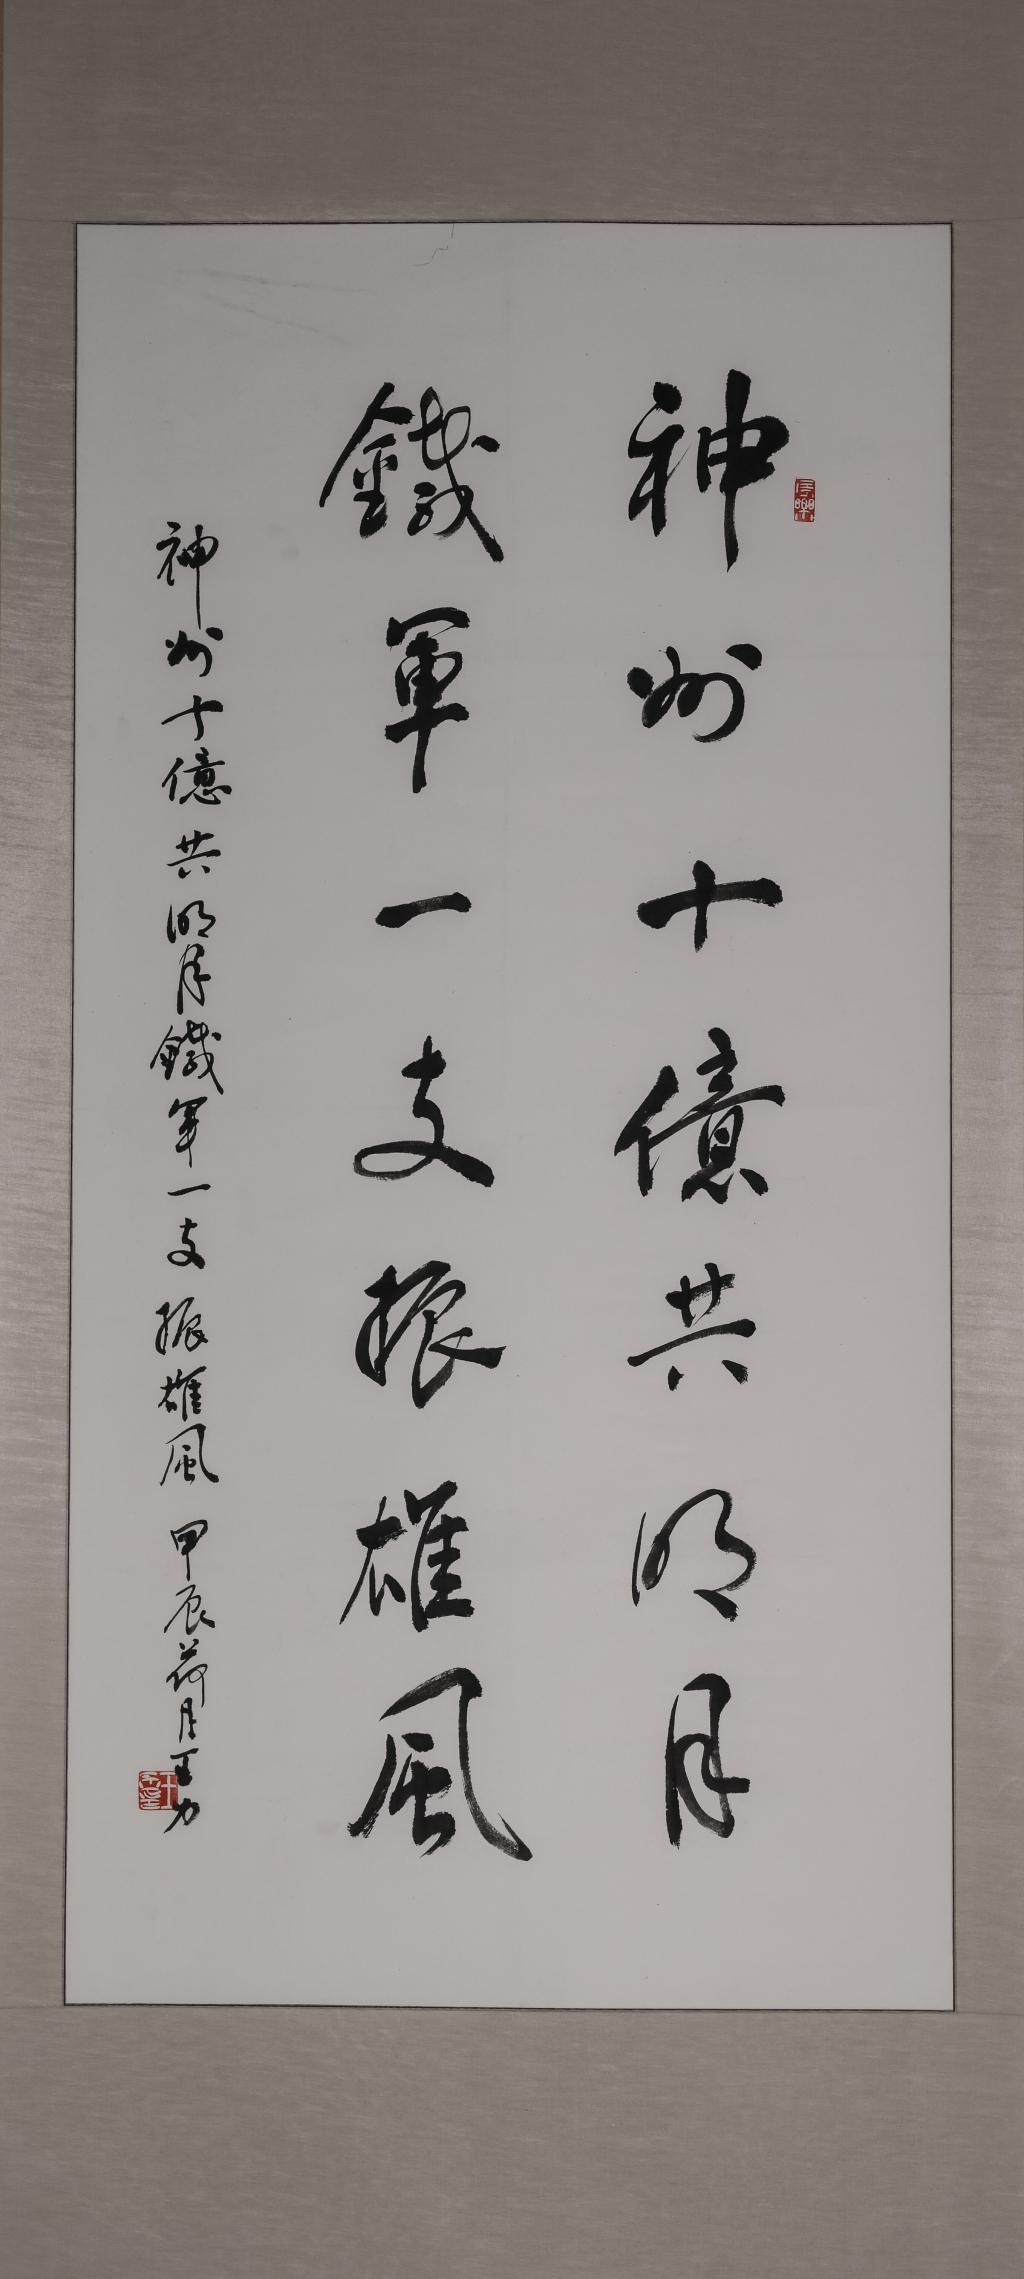 神州十億共明月
鐵軍一支振雄風
神州十億共明月鐵軍一支振雄風 甲辰荷月王力